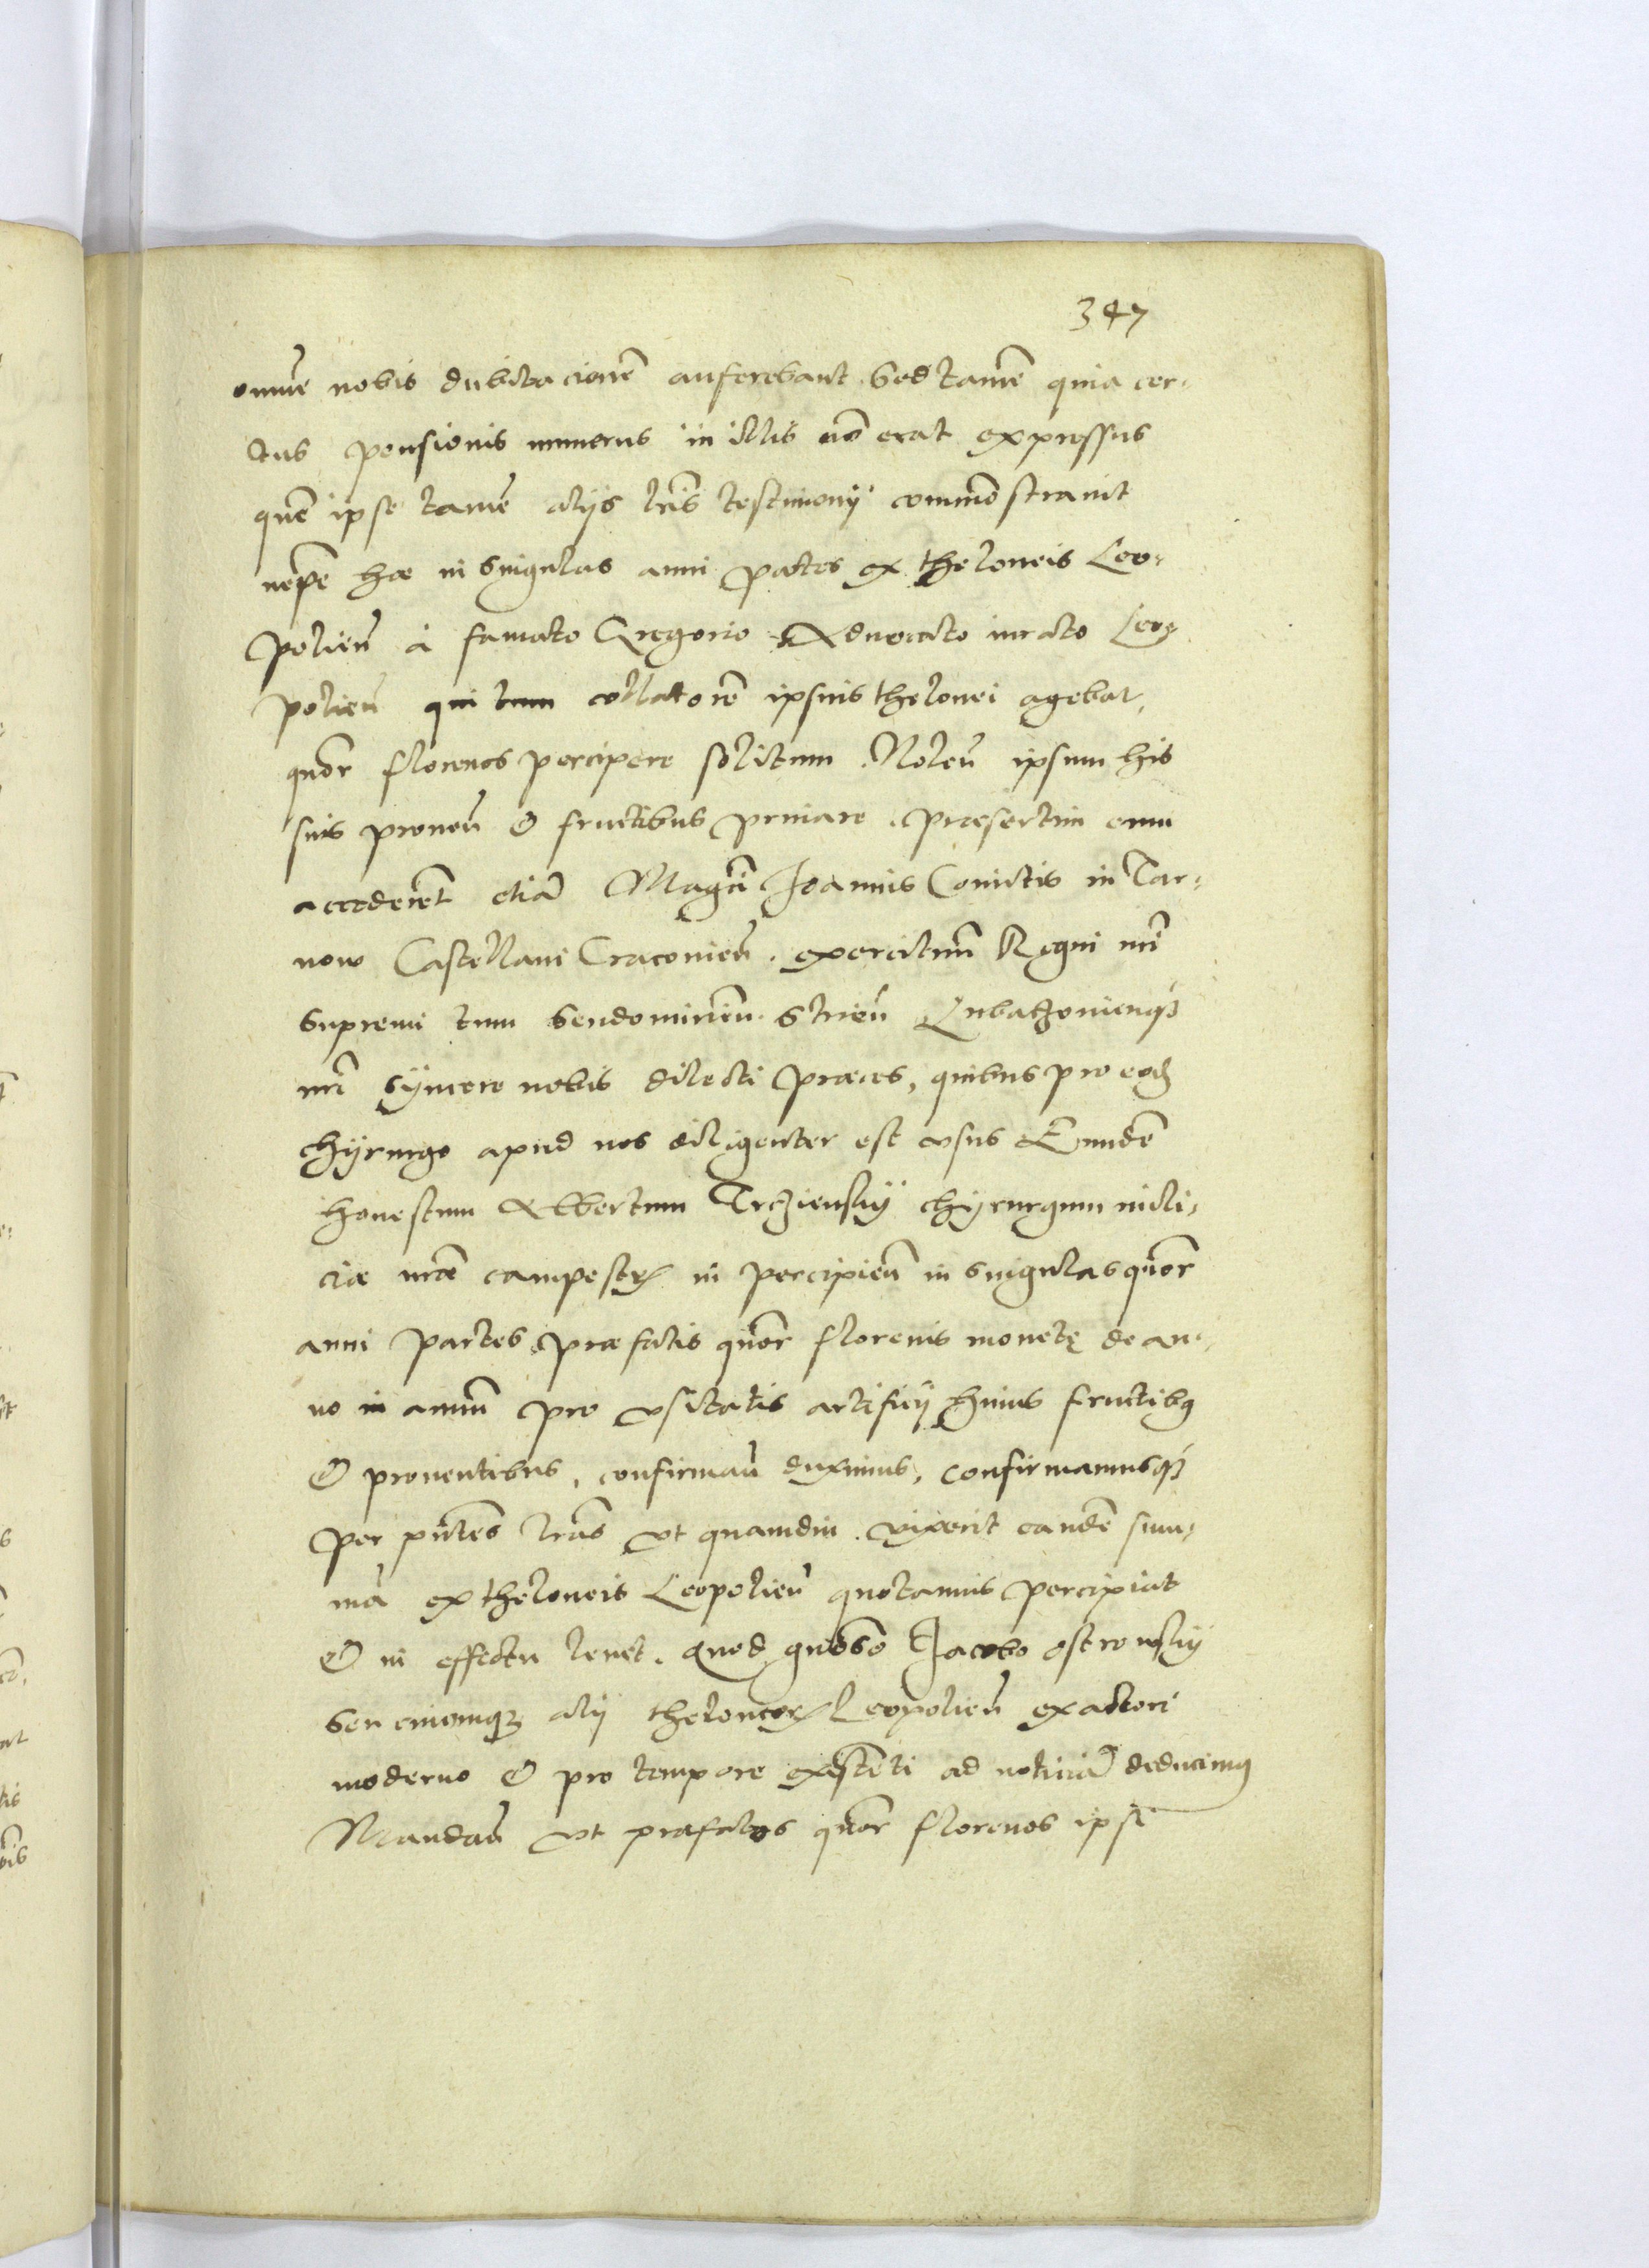 347
omnē nobis dubitacionē auferebant. Sed tamē quia cer-
tus pensionis numerus in illis nō erat expressus
quē ipse tamē alijs lrīs testimonij commōstrauit
nēpe hoc in singulas anni partes ex theloneis Leo-
polieñ à famato Gregorio Aduocato iurato Leo-
polieñ qui tum collatorē ipsius thelonei agebat,
quōr florenos percipere solitum. Noleñ ipsum his
suis proueñ & fructibus priuare. praesertim cum
accederēt etiā Magcī Joannis Comitis in Tar-
now Castellani Cracouieñ. exercituū Regni nrī
supremi tum Sendomirien. Strieñ Lubaczouienqȝ
nrī syncere nobis dilecti praeces, quibus pro eod
chyrurgo apud nos diligenter est vsus Eundē
honestum Albertum Trczienskij chyrurgum mili-
ciae nrae campestr in percipieñ in singulas quōr
anni partes praefatis quōr florenis monetę de an-
no in annū pro vsitatis artificij huius fructibꝯ
& prouentibus, confirmañ duximus, confirmamusqȝ
per pntēs lrās vt quamdiu vixerit eandē sum-
mā ex theloneis Leopolieñ quotannis percipiat
& in effectu tenet. quod gnōso Jacobo ostrowskij
seu cuicumqȝ alij theloneor Leopolieñ exactori
moderno & pro tempore existēti ad noticiā deducimꝯ
Mandañ vt praefatos quōr florenos ipsi